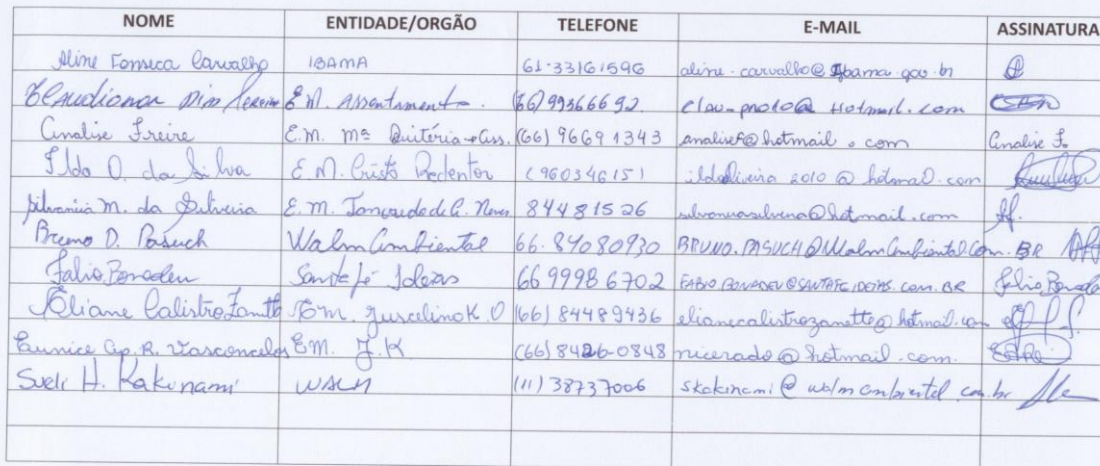 NOME ENTIDADE/ORGÃO TELEFONE E-MAIL ASSINATURA
Aline Fonseca Carvalho IBAMA 61-33161596 aline.carvalho@ibama.gov.br
Claudionor Dias Pereira E M. Assentamento. (66) 99366692. clau-proto@Hotmail.com
Analise Freire E.M. Mª Quitéria (66) 96691343 analisef@hotmail.com Analise F.
Ildo O. da Silva E M. Cristo Redentor (96034615) ildoliveira2010@hotmail.com
Silvania M. da Silveira E.M. Tancredo de A. Neves 84481526 silvaniasilveira@hotmail.com
Bruno D. Pasuch Walm Ambiental 66.84080930 BRUNO.PASUCH@WalmAmbiental.Com.BR
Fabio Bonadeu Santa fé Ideias 66 99986702 FABIO.BONADEU@SANTAFEIDEIAS.COM.BR Fabio Bonadeu
Eliane Calistro Zanette Em. Juscelino K. O (66) 84489436 elianecalistrozanette@hotmail.com
Eunice Ap. R. Vasconcelos EM. J. K (66) 8426-0848 nicerado@hotmail.com.
Sueli H. Kakinami WALM (11) 38737006 skakinami@walmambiental.com.br